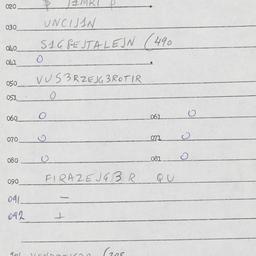 020
030 UNCIJ1N
040 S1GFEJTALEJN (490
041 0
050 VUS3RZEJG3ROTIR
051 0
060 0 061 0
070 0 072 0
080 0 081 0
090 FIRAZEJG3R QU
091 -
092 1